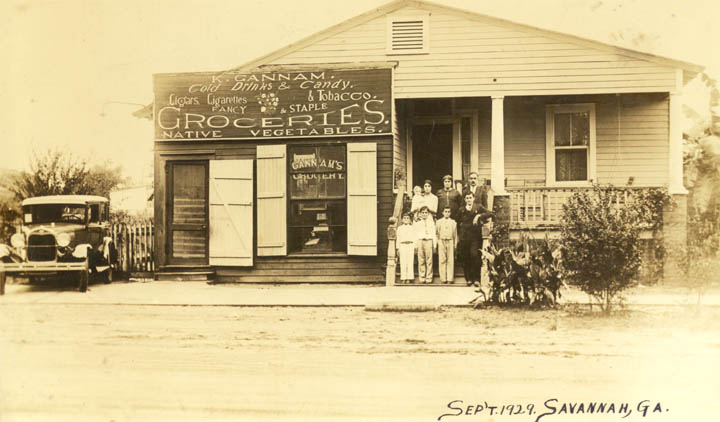 K. GANNAM.
Cold Drinks & Candy.
Cigars, Cigarettes & Tobacco.
FANCY & STAPLE
GROCERIES.
NATIVE VEGETABLES.
GANNAM'S
GROCERY.
SEP'T. 1929. SAVANNAH, GA.